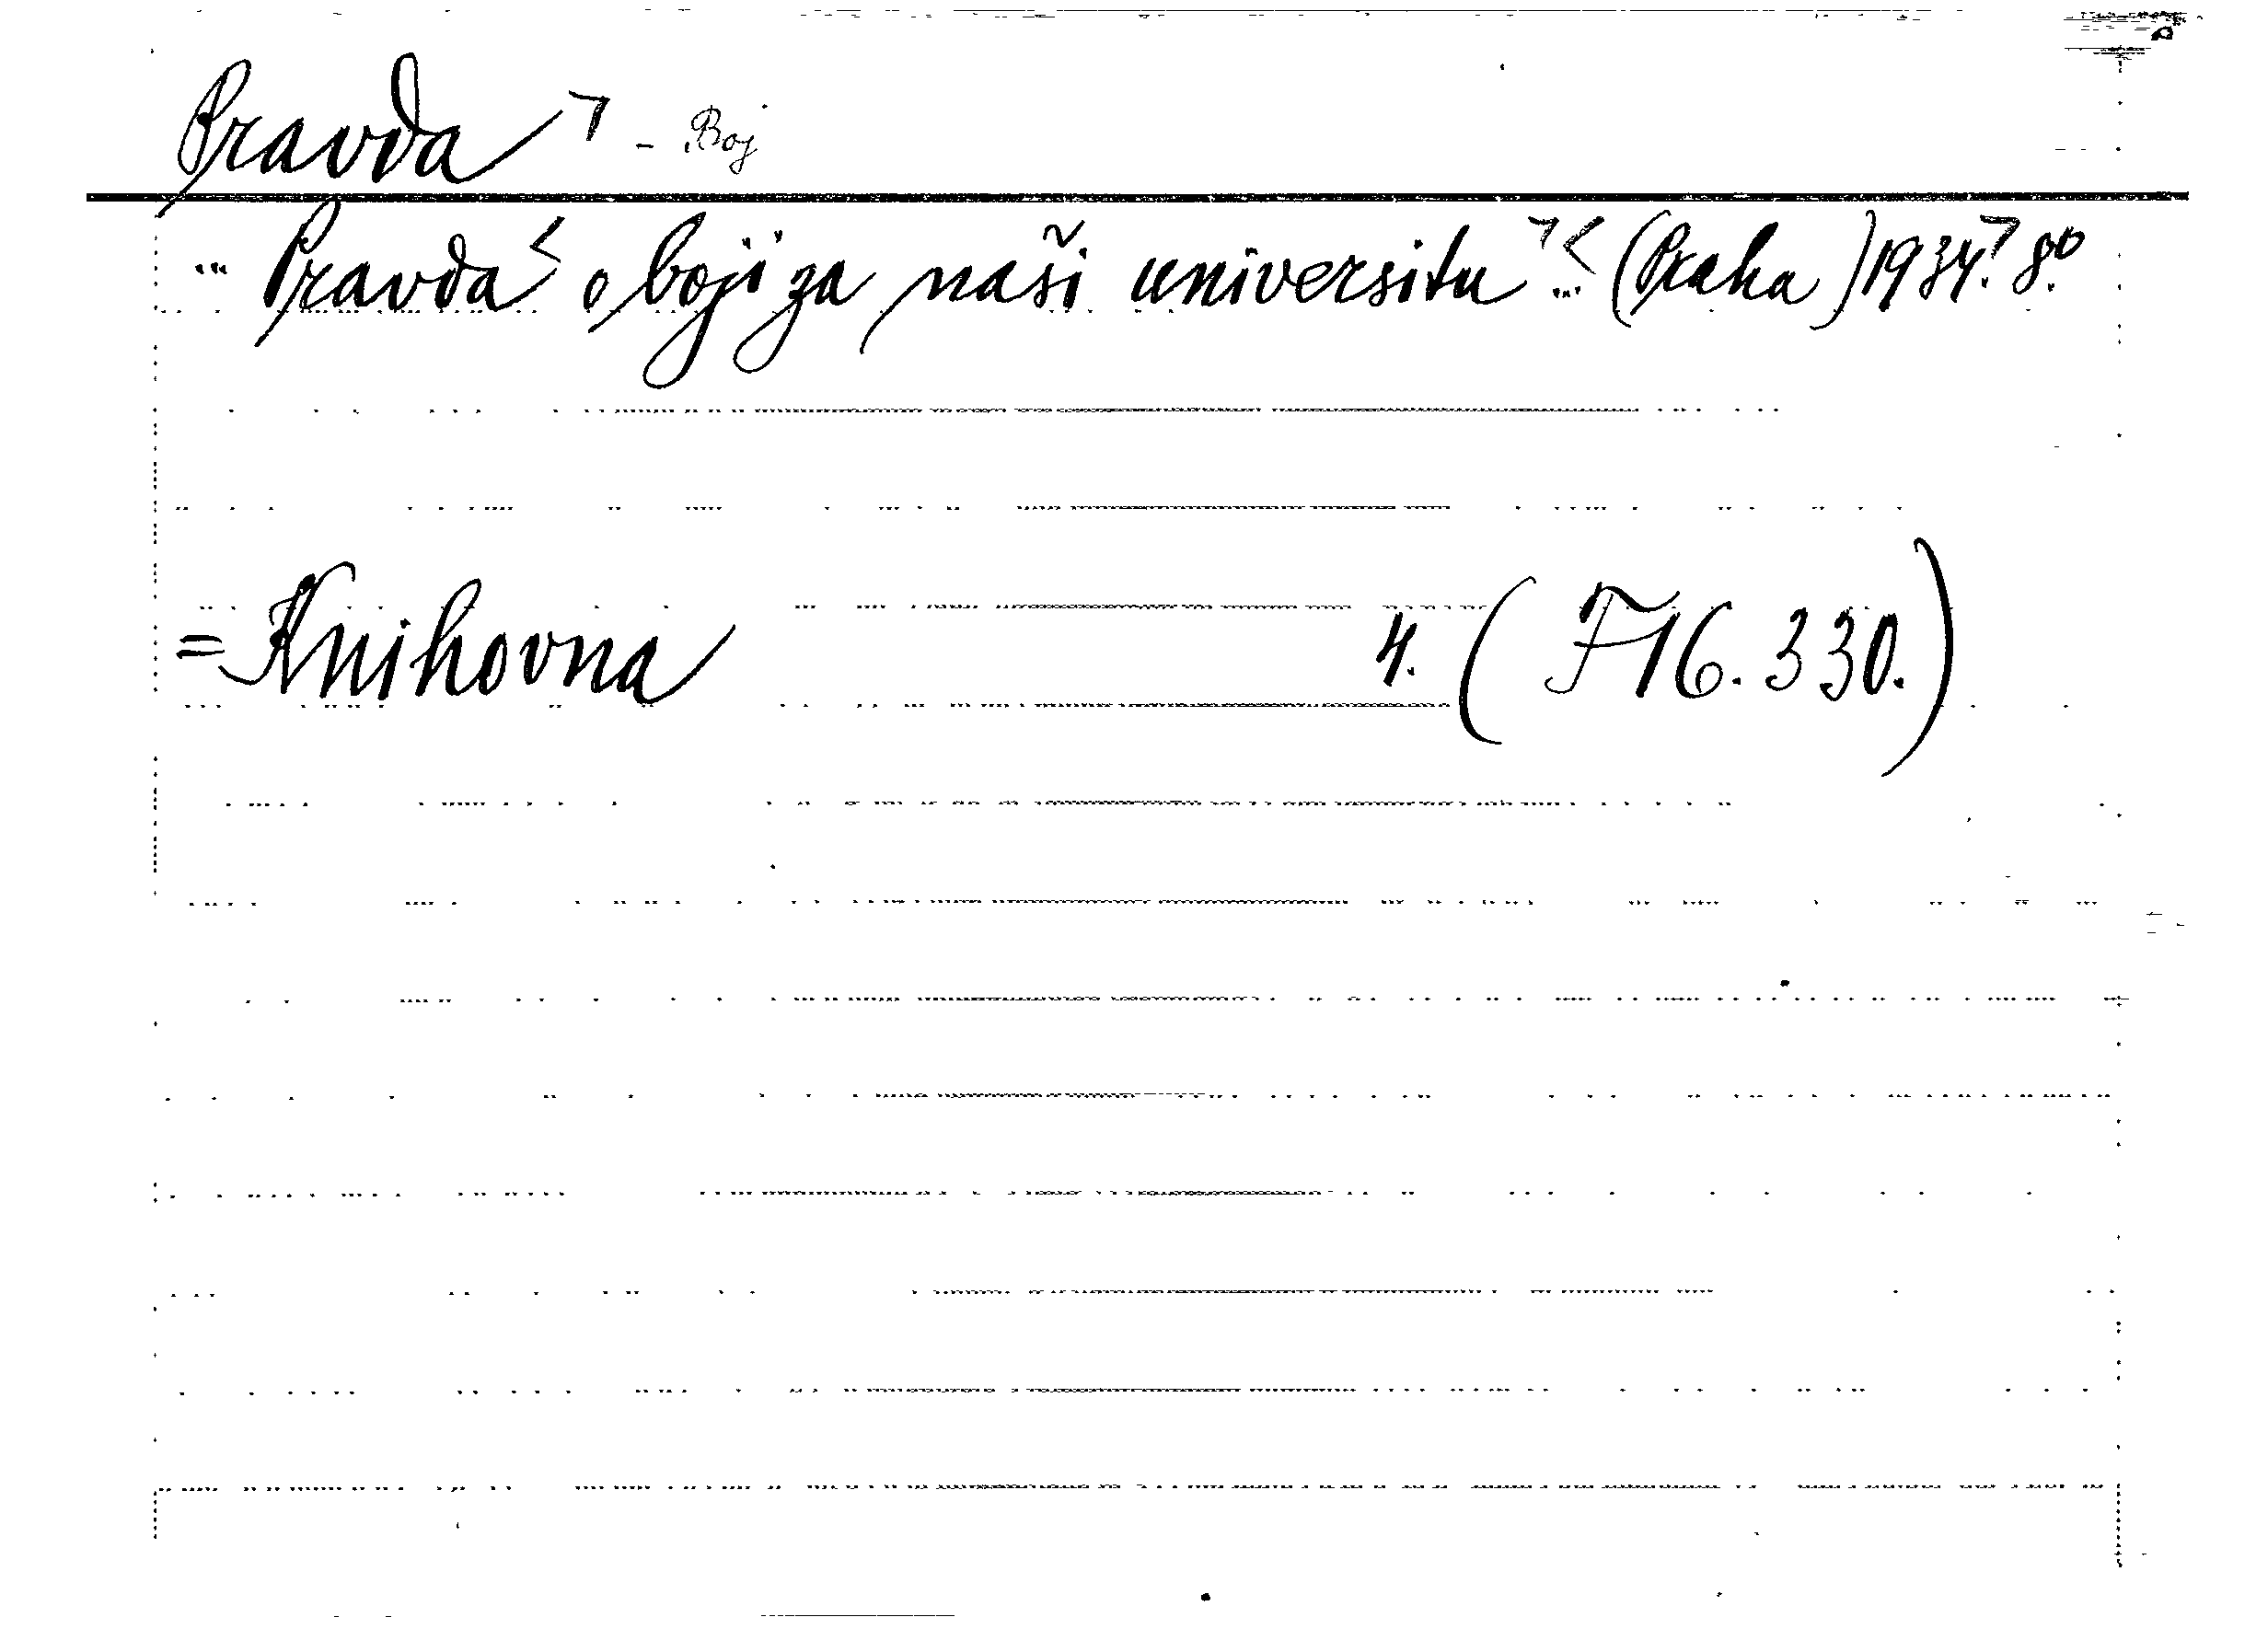 Pravda ⌝ - Boj
... Pravda < o boji za naši universitu ⌝< ... (Praha) 1934.⌝ 8.°
= Knihovna 4. ( F 16. 330. )